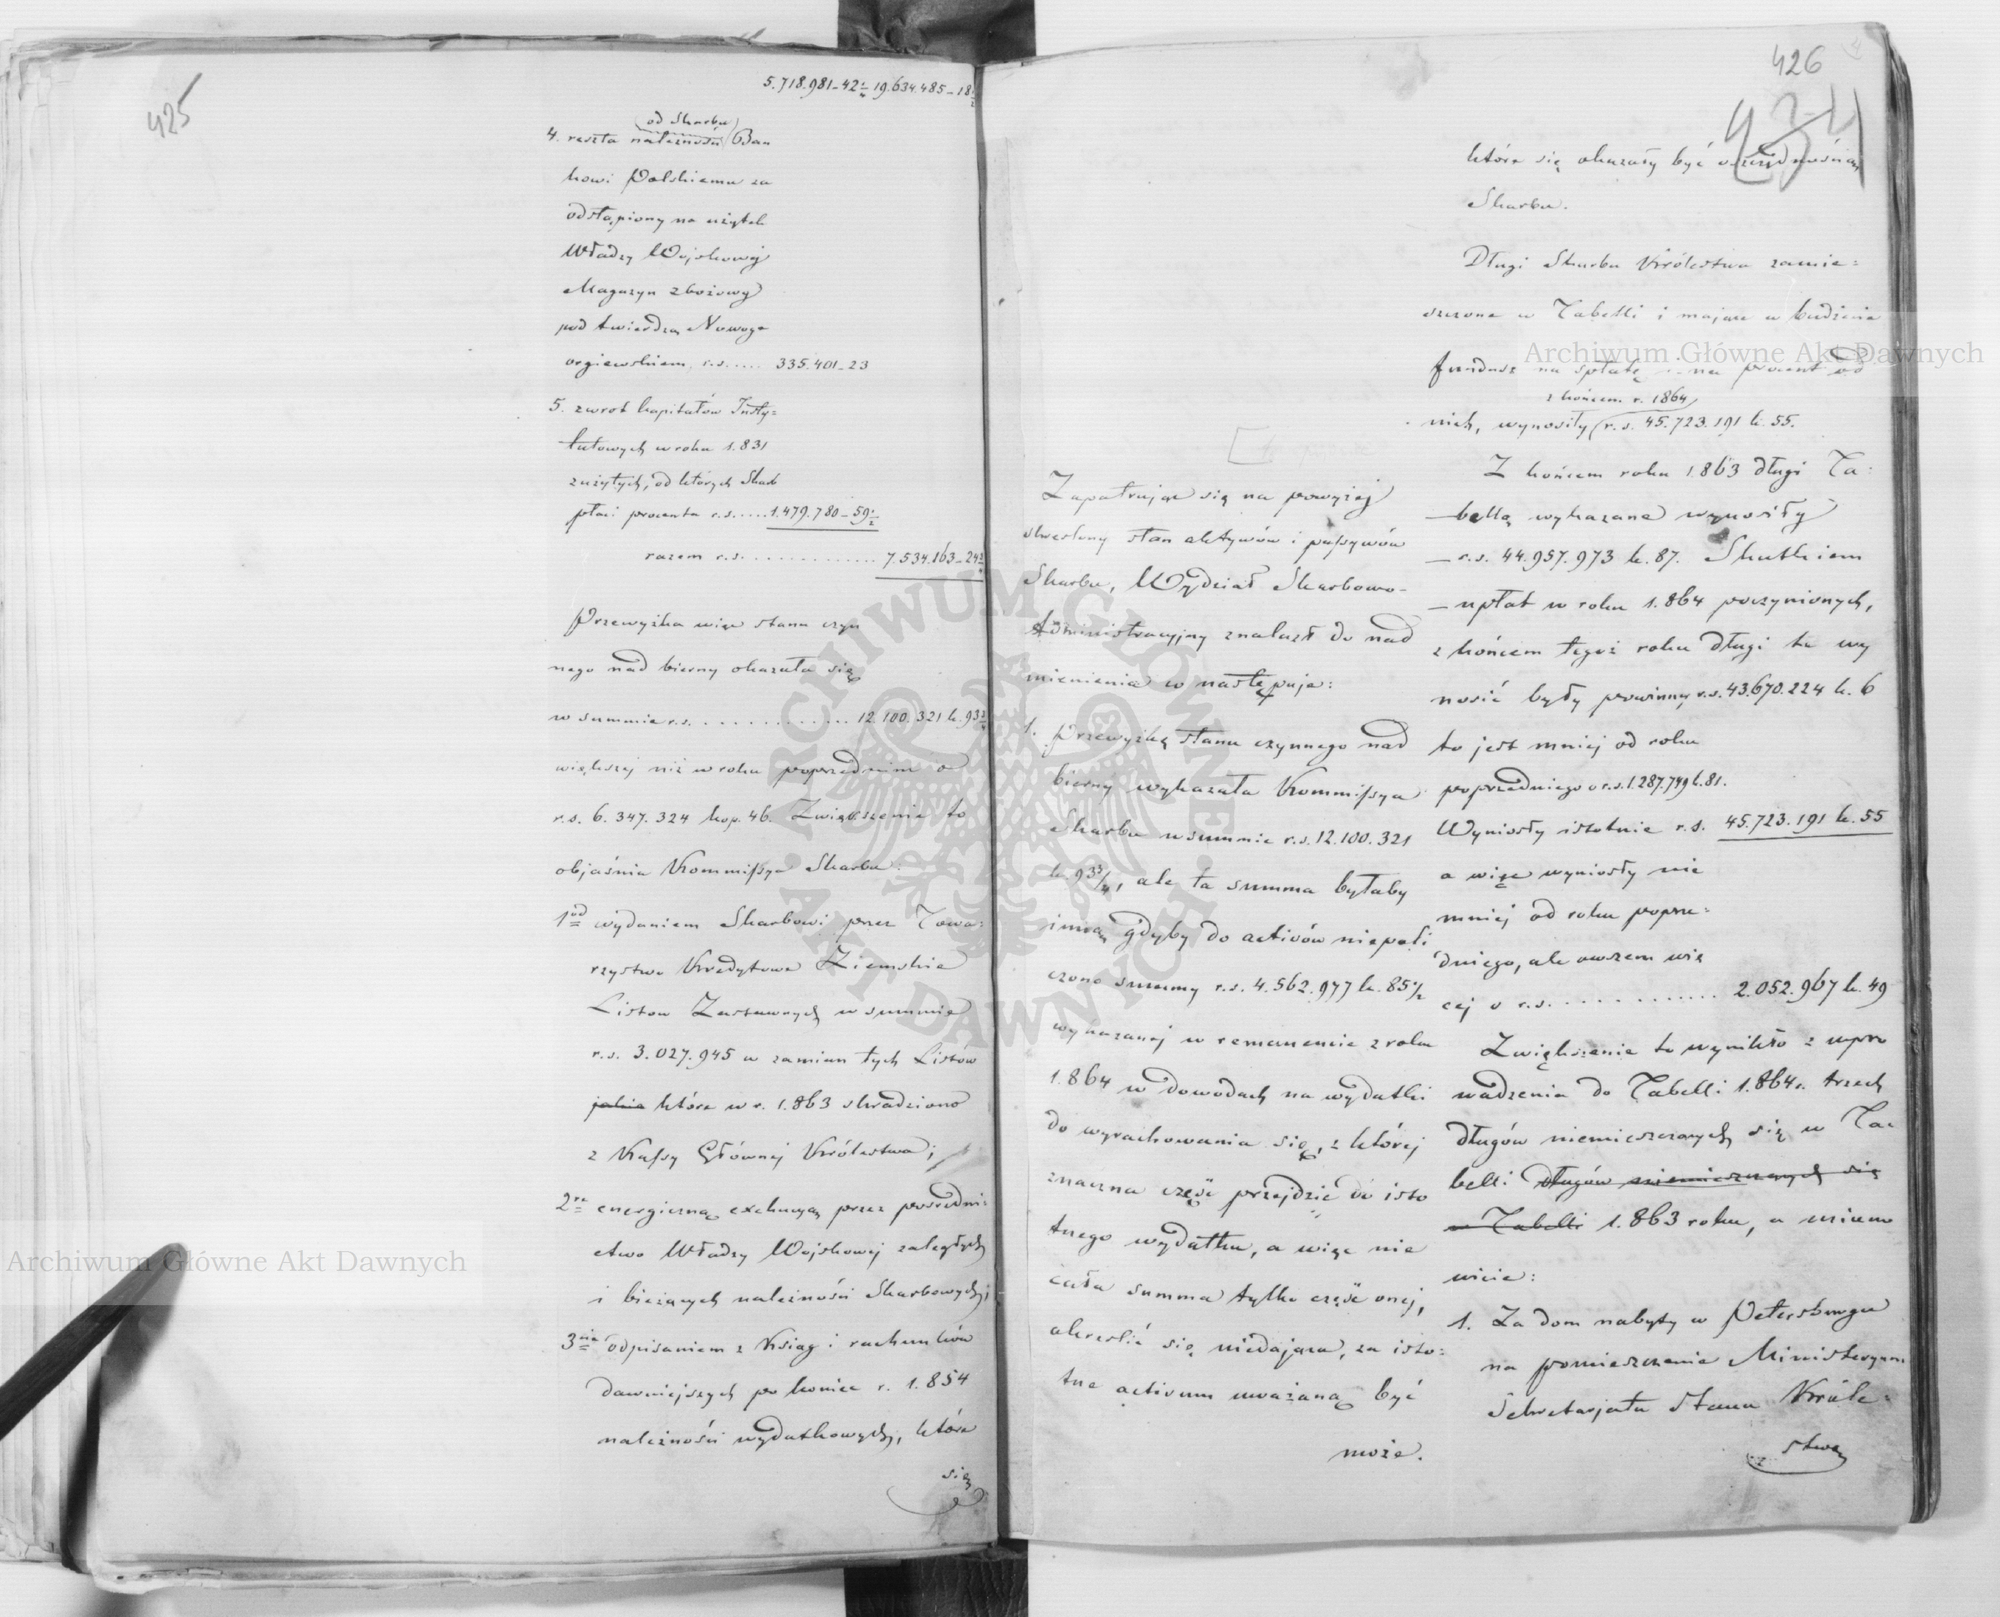 425
5.718.981-42 1/4 19.634.485-18 1/2
od Skarbu
4. reszta należności Ban
kowi Polskiemu za
odstąpiony na użytek
Władzy Wojskowej
Magazyn zbożowy
pod twierdzą Nowoge
orgiewskiem, r.s. .... 335.401-23
5. zwrot kapitałów Insty=
tutowych w roku 1.831
zużytych, od których Skarb
płaci procenta r.s. .... 1.479.780-59 1/2
razem r.s. ............ 7.534.163-24 3/4
Przewyżka więc stanu czyn
nego nad bierny okazała się
w summie r.s. ............ 12.100.321 k. 93 3/4
większej niż w roku poprzednim o
r.s. 6.347.324 kop. 46. Zwiększenie to
objaśnia Kommissya Skarbu:
1od wydaniem Skarbowi przez Towa:
rzystwo Kredytowe Ziemskie
Listow Zastawnych w summie
r.s. 3.027.945 w zamian tych Listów
jakie które w r. 1.863 skradziono
z Kassy Głównej Królestwa;
2re energiczną exekucyą przez pośredni:
ctwo Władzy Wojskowej zaległych
i bieżących należności Skarbowych;
3cie odpisaniem z Ksiąg i rachunków
dawniejszych po koniec r. 1.854
należności wydatkowych, które
się
426
434
Zapatrując się na powyżej
skreślony stan aktywów i passywów
Skarbu, Wydział Skarbowo-
Administracyjny znalazł do nad
mienienia co następuje:
1. Przewyżkę stanu czynnego nad
bierny wykazała Kommissya
Skarbu w summie r.s. 12.100.321
k. 93 3/4, ale ta summa byłaby
inną gdyby do activów niepoli
czono summy r.s. 4.562.977 k. 85 1/2
wykazanej w remanencie z roku
1.864 w dowodach na wydatki
do wyrachowania się, z której
znaczna część przejdzie do isto
tnego wydatku, a więc nie
cała summa tylko część onej,
określić się niedająca, za isto:
tne activum uważaną być
może.
które się okazały być oszczędnością
Skarbu.
Długi Skarbu Królestwa zamie=
szczone w Tabelli i mające w budżecie
fundusz na spłatę i na procent od
z końcem r. 1864
nich, wynosiły r.s. 45.723.191 k. 55.
Z końcem roku 1.863 długi Ta:
bellą wykazane wynosiły
r.s. 44.957.973 k. 87. Skutkiem
upłat w roku 1.864 poczynionych,
z końcem tegoż roku długi te wy
nosić były powinny r.s. 43.670.224 k. 6
to jest mniej od roku
poprzedniego o r.s. 1.287.749 k. 81.
Wyniosły istotnie r.s. 45.723.191 k. 55
a więc wyniosły nie
mniej od roku poprze:
dniego, ale owszem wię
cej o r.s. ............ 2.052.967 k. 49
Zwiększenie to wynikło z wpro
wadzenia do Tabelli 1.864 r. trzech
długów niemieszczonych się w Ta:
belli długów niemieszczonych się
w Tabelli 1.863 roku, a miano
wicie:
1. Za dom nabyty w Petersburgu
na pomieszczenie Ministeryum
Sekretarjatu Stanu Króle=
stwa
Archiwum Główne Akt Dawnych
Archiwum Główne Akt Dawnych
ARCHIWUM GŁÓWNE AKT DAWNYCH